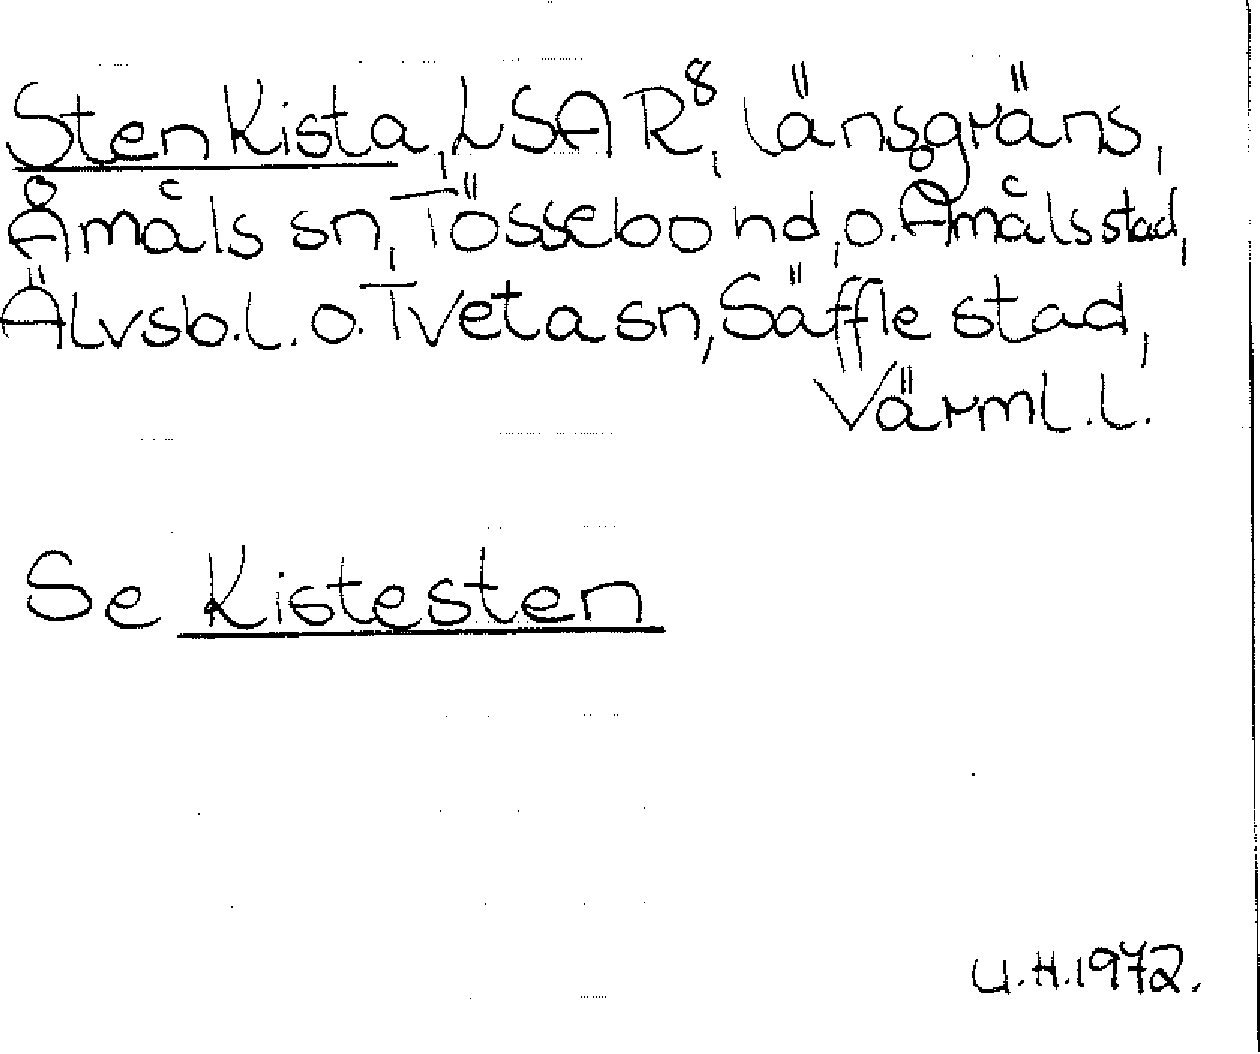 Sten Kista, LSA R⁸, länsgräns,
Åmåls sn, Tössebo hd, o. Åmåls stad,
Älvsb. l. o. Tveta sn, Säffle stad,
Värml. l.
Se Kistesten
U.H. 1972.